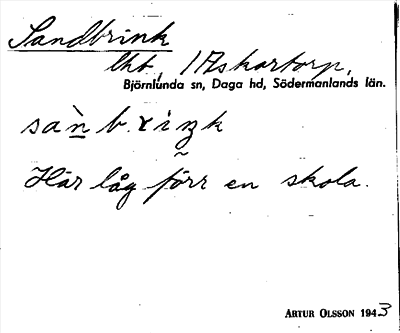 Sandbrink
lht, /Askartorp,
Björnlunda sn, Daga hd, Södermanlands län.
sàn b. riŋk
Här låg förr en skola.
ARTUR OLSSON 1943